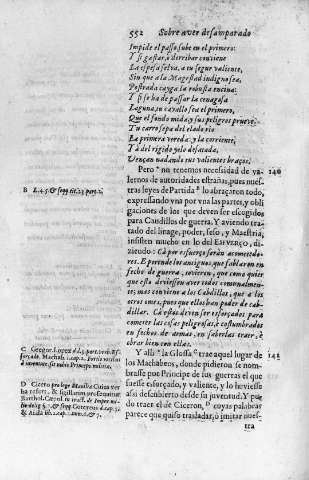 552 Sobre aver desamparado
Impide el passo, sube en el primero:
Y si gastar, ò derribar conviene
La espesa selva, a tu segur valiente,
Sin que a la Magestad indigno sea,
Postrada cayga la robusta encina:
Y si se ha de passar la cenagosa
Laguna, tu cavallo sea el primero,
Que el fundo mida, y sus peligros prueve.
Tu carro sepa del elado rio
La primera vereda: y la corriente,
Yà del rigido yelo desatada,
Vençan nadando sus valientes braços.
Pero no tenemos necessidad de va-
lernos de autoridades estrañas, pues nues-
tras leyes de Partida B lo abraçaron todo,
expressando vna por vna las partes, y obli
gaciones de los que deven ser escogidos
para Caudillos de guerra. Y aviendo tra-
tado del linage, poder, seso, y Maestria,
insisten mucho en lo del ESFVERÇO, di-
ziendo: Cà por esfuerço seràn acometedo-
res. E porende los antiguos, que fablaron en
fecho de guerra, tovieron, que como quier
que esta deviessen aver todos comunalmen-
te; mas conviene a los Cabdillos, que a los
otros omes, pues que ellos han poder de cab-
dillar. Cà estos deven ser esforçados para
cometer las cosas peligrosas, è costumbrados
en fechos de armas, en saberlas traer, è
obrar bien con ellas.
Y alli C la Glossa trae aquel lugar de
los Machabeos, donde pidieron se nom-
brasse por Principe de sus guerras el que
fuesse esforçado, y valiente, y lo huviesse
assi descubierto desde su juventud. Y pu-
do traer el de Ciceron, D cuyas palabras
parece que quiso trasladar, ò imitar nues-
tra
140
141
B L. 4. 5. & seqq. tit. 23. part. 2.
C Gregor. Lopez
D Cicero pro lege Manilia